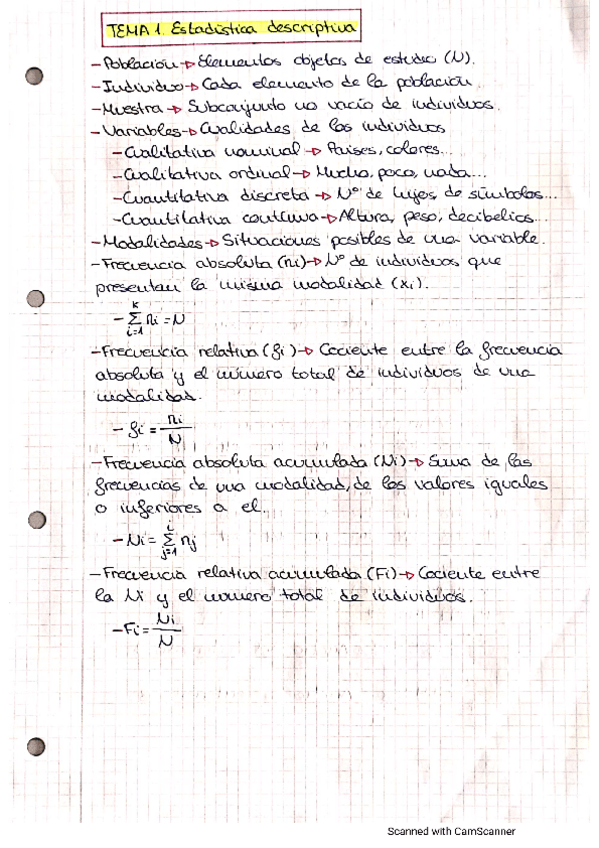 TEMA 1. Estadística descriptiva
-Población→Elementos objetos de estudio (N).
-Individuo→Cada elemento de la población.
-Muestra→Subconjunto no vacío de individuos.
-Variables→Cualidades de los individuos
-Cualitativa nominal→Países, colores...
-Cualitativa ordinal→Mucho, poco, nada...
-Cuantitativa discreta→Nº de hijos, de símbolos...
-Cuantitativa continua→Altura, peso, decibelios...
-Modalidades→Situaciones posibles de una variable.
-Frecuencia absoluta (ni)→Nº de individuos que
presentan la misma modalidad (xi).
-∑_{i=1}^{k} ni = N
-Frecuencia relativa (fi)→Cociente entre la frecuencia
absoluta y el número total de individuos de una
modalidad.
-fi = ni/N
-Frecuencia absoluta acumulada (Ni)→Suma de las
frecuencias de una modalidad, de los valores iguales
o inferiores a el.
-Ni = ∑_{j=1}^{i} nj
-Frecuencia relativa acumulada (Fi)→Cociente entre
la Ni y el número total de individuos.
-Fi = Ni/N
Scanned with CamScanner